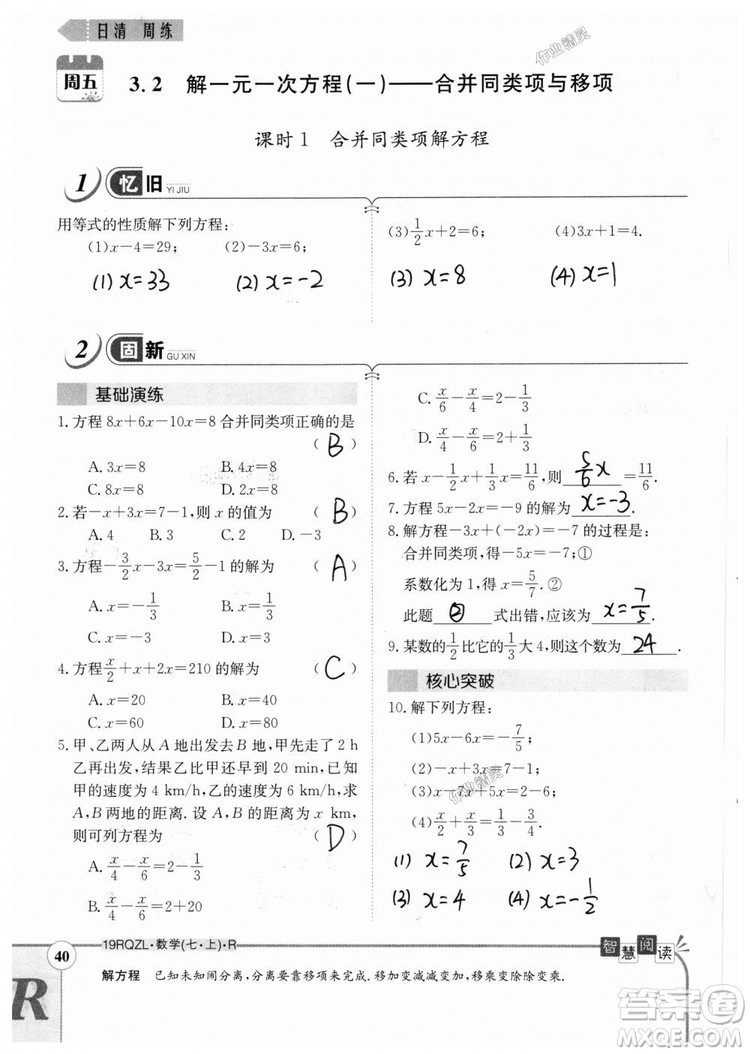 日清 周练
周五
3.2 解一元一次方程(一)——合并同类项与移项
课时1 合并同类项解方程
1 忆旧 YI JIU
用等式的性质解下列方程:
(1)x-4=29; (2)-3x=6;
(1) x=33 (2) x=-2
(3)1/2x+2=6; (4)3x+1=4.
(3) x=8 (4) x=1
2 固新 GU XIN
基础演练
1.方程8x+6x-10x=8合并同类项正确的是
( B )
A.3x=8 B.4x=8
C.8x=8 D.2x=8
2.若-x+3x=7-1,则x的值为 ( B )
A.4 B.3 C.2 D.-3
3.方程-3/2x-3x=5/2-1的解为 ( A )
A.x=-1/3 B.x=1/3
C.x=-3 D.x=3
4.方程x/2+x+2x=210的解为 ( C )
A.x=20 B.x=40
C.x=60 D.x=80
5.甲、乙两人从A地出发去B地,甲先走了2 h
乙再出发,结果乙比甲还早到20 min,已知
甲的速度为4 km/h,乙的速度为6 km/h,求
A,B两地的距离.设A,B的距离为x km,
则可列方程为 ( D )
A.x/4-x/6=2-1/3
B.x/4-x/6=2+1/3
C.x/6-x/4=2-1/3
D.x/6-x/4=2+1/3
6.若x-1/2x+1/3x=11/6,则 5/6x =11/6.
7.方程5x-2x=-9的解为 x=-3.
8.解方程-3x+(-2x)=-7的过程是:
合并同类项,得-5x=-7;①
系数化为1,得x=5/7.②
此题 ② 式出错,应该为 x=7/5.
9.某数的1/2比它的1/3大4,则这个数为 24 .
核心突破
10.解下列方程:
(1)5x-6x=-7/5;
(2)-1/2x+x=3/2;
(3)x-7x+5x=2-6;
(4)x/2+x/3+x/6=-1/2.
(1) x=7/5 (2) x=3
(3) x=4 (4) x=-1/2
40
19RQZL·数学(七·上)·R
智慧阅读
解方程 已知未知闹分离,分离要靠移项来完成.移加变减减变加,移乘变除除变乘.
R
作业精灵
作业精灵
答案圈
MXQE.COM